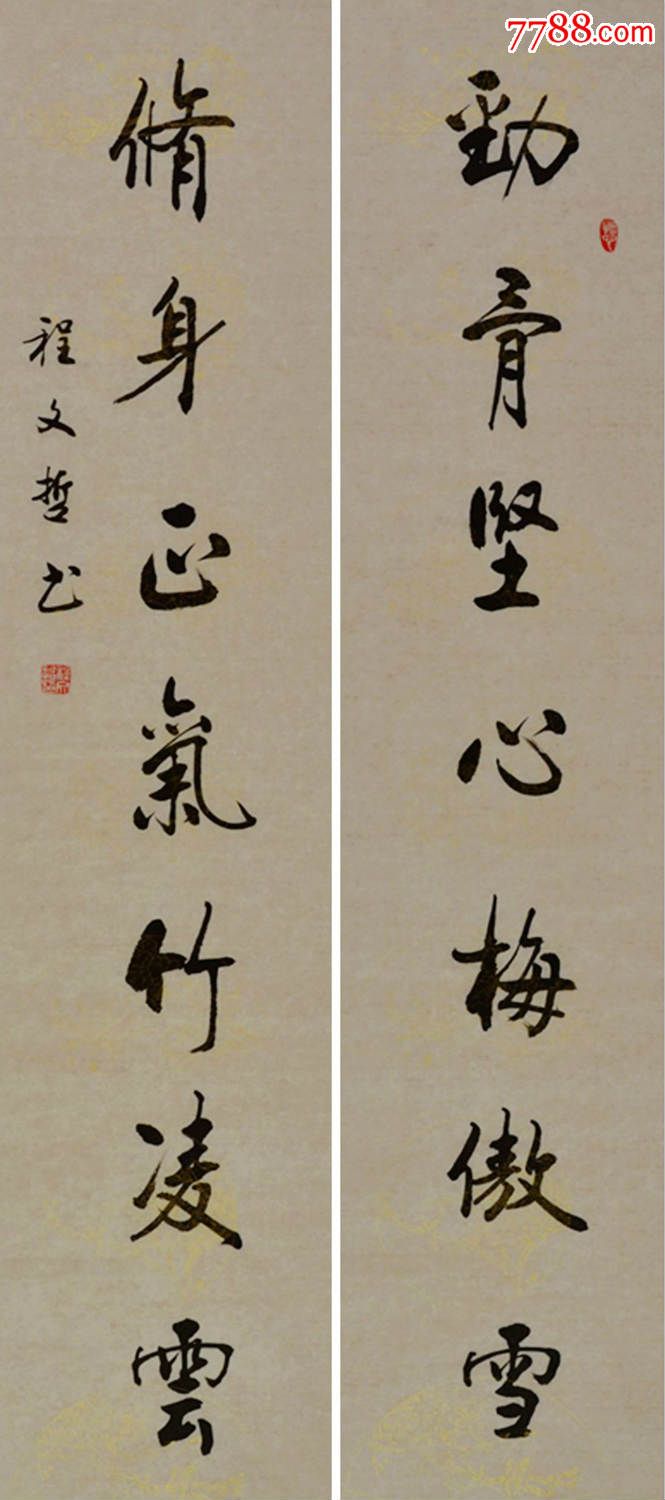 7788.com
勁骨堅心梅傲雪
脩身正氣竹凌雲
程文哲书